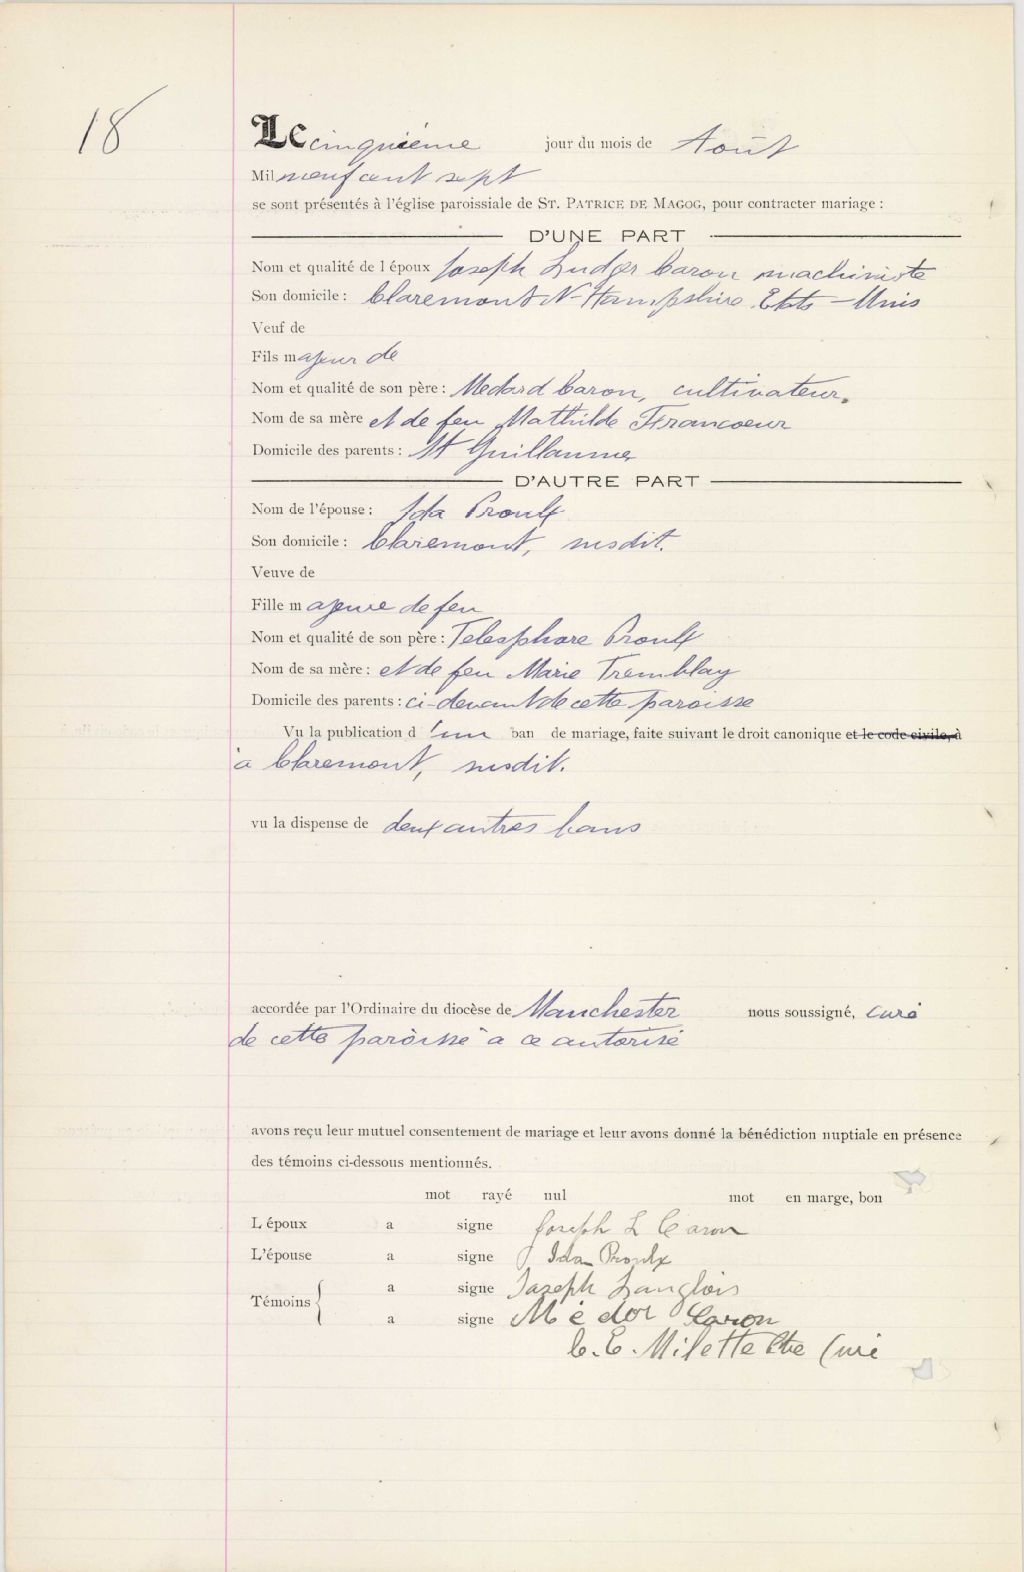 18
Le cinquiéme jour du mois de Août
Mil neuf cent sept
se sont présentés à l'église paroissiale de ST. PATRICE DE MAGOG, pour contracter mariage :
D'UNE PART
Nom et qualité de l époux Joseph Ludger Caron machiniste
Son domicile : Claremont N-Hampshire Etats-Unis
Veuf de
Fils majeur de
Nom et qualité de son père : Medard Caron, cultivateur.
Nom de sa mère et de feu Mathilde Francoeur
Domicile des parents : St Guillaume
D'AUTRE PART
Nom de l'épouse : Ida Proulx
Son domicile : Claremont, susdit.
Veuve de
Fille majeure de feu
Nom et qualité de son père : Telesphore Proulx
Nom de sa mère : et de feu Marie Tremblay
Domicile des parents : ci-devant de cette paroisse
Vu la publication d'un ban de mariage, faite suivant le droit canonique et le code civile, à
à Claremont, susdit.
vu la dispense de deux autres bans
accordée par l'Ordinaire du diocèse de Manchester nous soussigné, curé
de cette paroisse à ce autorisé
avons reçu leur mutuel consentement de mariage et leur avons donné la bénédiction nuptiale en présence
des témoins ci-dessous mentionnés.
mot rayé nul mot en marge, bon
L époux a signe Joseph L Caron
L'épouse a signe Ida Proulx
Témoins { a signe Joseph Langlois
a signe Médor Caron
C. E. Milette Ptre Curé